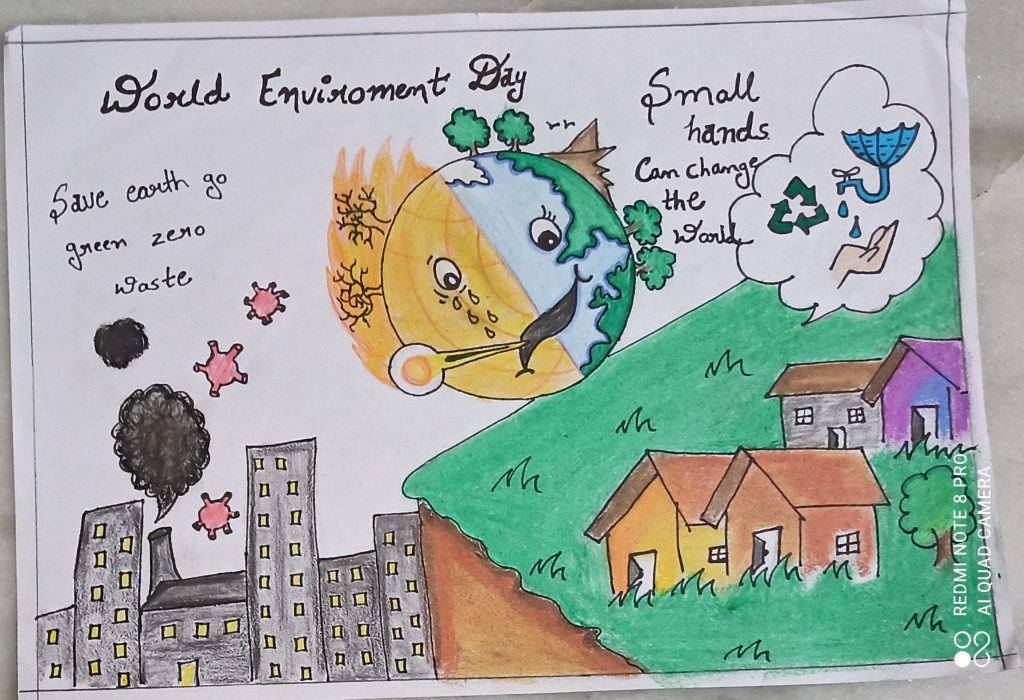 World Enviroment Day
Save earth go
green zero
waste
Small
hands
Can change
the
World
REDMI NOTE 8 PRO
AI QUAD CAMERA